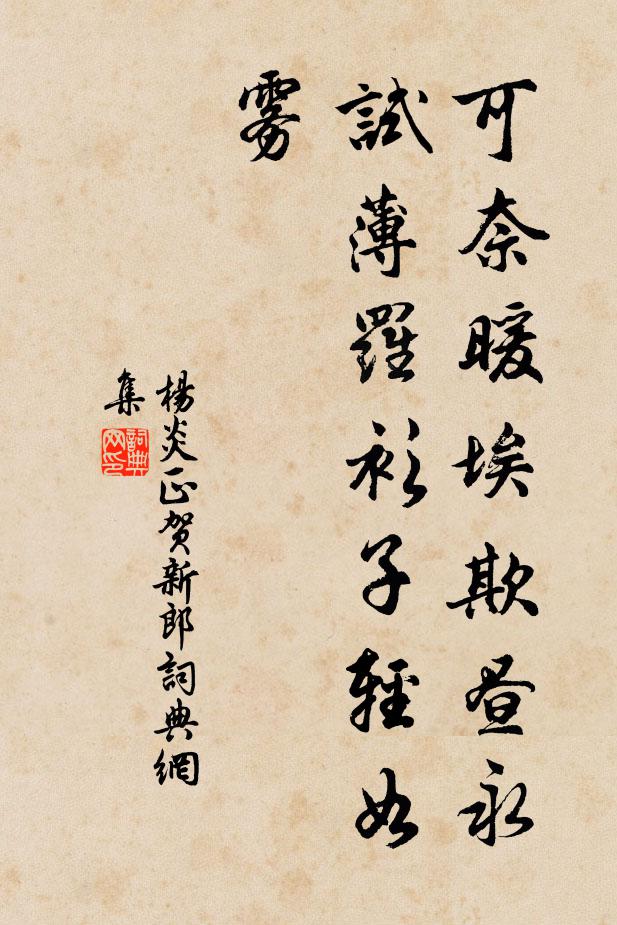 可奈暖埃欺昼永
試薄羅衫子輕如
雾
楊炎正賀新郎詞典網
集
詞典
网印